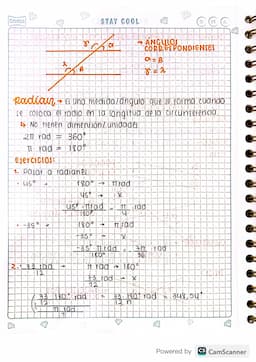 STAY COOL
→ ÁNGULOS
CORRESPONDIENTES
α = B
γ = 2
Radián → Es una medida/ángulo que se forma cuando
se coloca el radio en la longitud de la circunferencia.
↳ No tienen dimensión/unidades
2π rad = 360°
π rad = 180°
EJERCICIOS:
1. Pasar a radianes
45° → 180° → π rad
45° → x
45° · π rad = π rad
180° 4
-35° → 180° → π rad
-35° → x
-35° π rad
180° 36
2. 33 rad → π rad → 180°
12
33 rad → x
12
33 · 180° rad
12
π rad
Powered by CamScanner